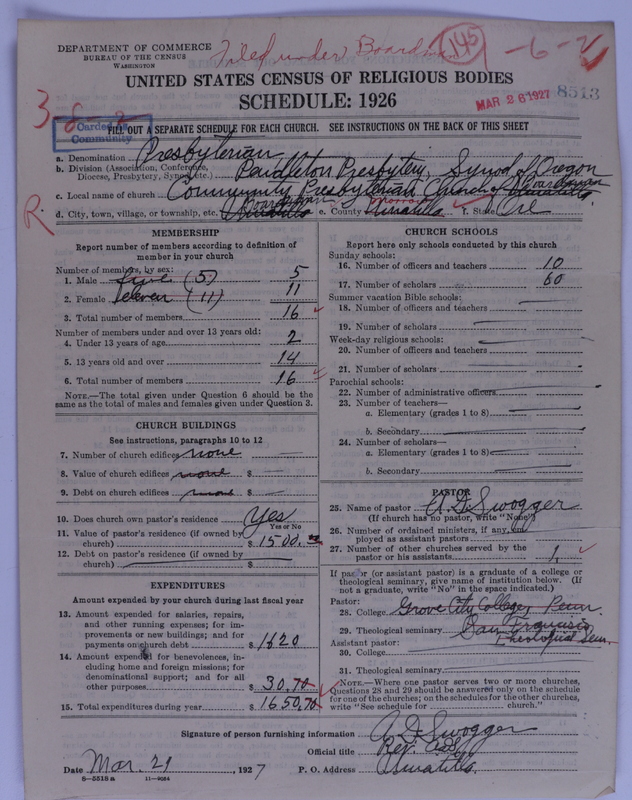 DEPARTMENT OF COMMERCE
BUREAU OF THE CENSUS
WASHINGTON
Filed under Boardman
145
-6-2
UNITED STATES CENSUS OF RELIGIOUS BODIES
SCHEDULE: 1926
MAR 26 1927
8513
3-8-2
Carded
Community
FILL OUT A SEPARATE SCHEDULE FOR EACH CHURCH. SEE INSTRUCTIONS ON THE BACK OF THIS SHEET
a. Denomination Presbyterian
b. Division (Association, Conference, Diocese, Presbytery, Synod, etc.) Pendleton Presbytery, Synod of Oregon
c. Local name of church Community Presbyterian Church of Umatilla Boardman
R.
d. City, town, village, or township, etc. Umatilla Boardman e. County Umatilla Morrow f. State Ore
MEMBERSHIP
Report number of members according to definition of member in your church
Number of members, by sex:
1. Male five (5) 5
2. Female eleven (11) 11
3. Total number of members 16
Number of members under and over 13 years old:
4. Under 13 years of age 2
5. 13 years old and over 14
6. Total number of members 16
NOTE.—The total given under Question 6 should be the same as the total of males and females given under Question 3.
CHURCH BUILDINGS
See instructions, paragraphs 10 to 12
7. Number of church edifices none
8. Value of church edifices none $
9. Debt on church edifices none $
10. Does church own pastor's residence Yes
Yes or No
11. Value of pastor's residence (if owned by church) $ 1500.
12. Debt on pastor's residence (if owned by church) $
EXPENDITURES
Amount expended by your church during last fiscal year
13. Amount expended for salaries, repairs, and other running expenses; for improvements or new buildings; and for payments on church debt $ 1620
14. Amount expended for benevolences, including home and foreign missions; for denominational support; and for all other purposes $ 30.70
15. Total expenditures during year $ 1650.70
CHURCH SCHOOLS
Report here only schools conducted by this church
Sunday schools:
16. Number of officers and teachers 10
17. Number of scholars 60
Summer vacation Bible schools:
18. Number of officers and teachers
19. Number of scholars
Week-day religious schools:
20. Number of officers and teachers
21. Number of scholars
Parochial schools:
22. Number of administrative officers
23. Number of teachers—
a. Elementary (grades 1 to 8)
b. Secondary
24. Number of scholars—
a. Elementary (grades 1 to 8)
b. Secondary
PASTOR
25. Name of pastor A. D. Swogger
(If church has no pastor, write "None")
26. Number of ordained ministers, if any, employed as assistant pastors
27. Number of other churches served by the pastor or his assistants 1
If pastor (or assistant pastor) is a graduate of a college or theological seminary, give name of institution below. (If not a graduate, write "No" in the space indicated.)
Pastor:
28. College Grove City College, Penn.
29. Theological seminary San Francisco Theological Sem.
Assistant pastor:
30. College
31. Theological seminary
NOTE.—Where one pastor serves two or more churches, Questions 28 and 29 should be answered only on the schedule for one of the churches; on the schedules for the other churches, write "See schedule for church."
Signature of person furnishing information A. D. Swogger
Official title Rev.
Date Mar. 21, 1927 P. O. Address Umatilla.
8-5518 a